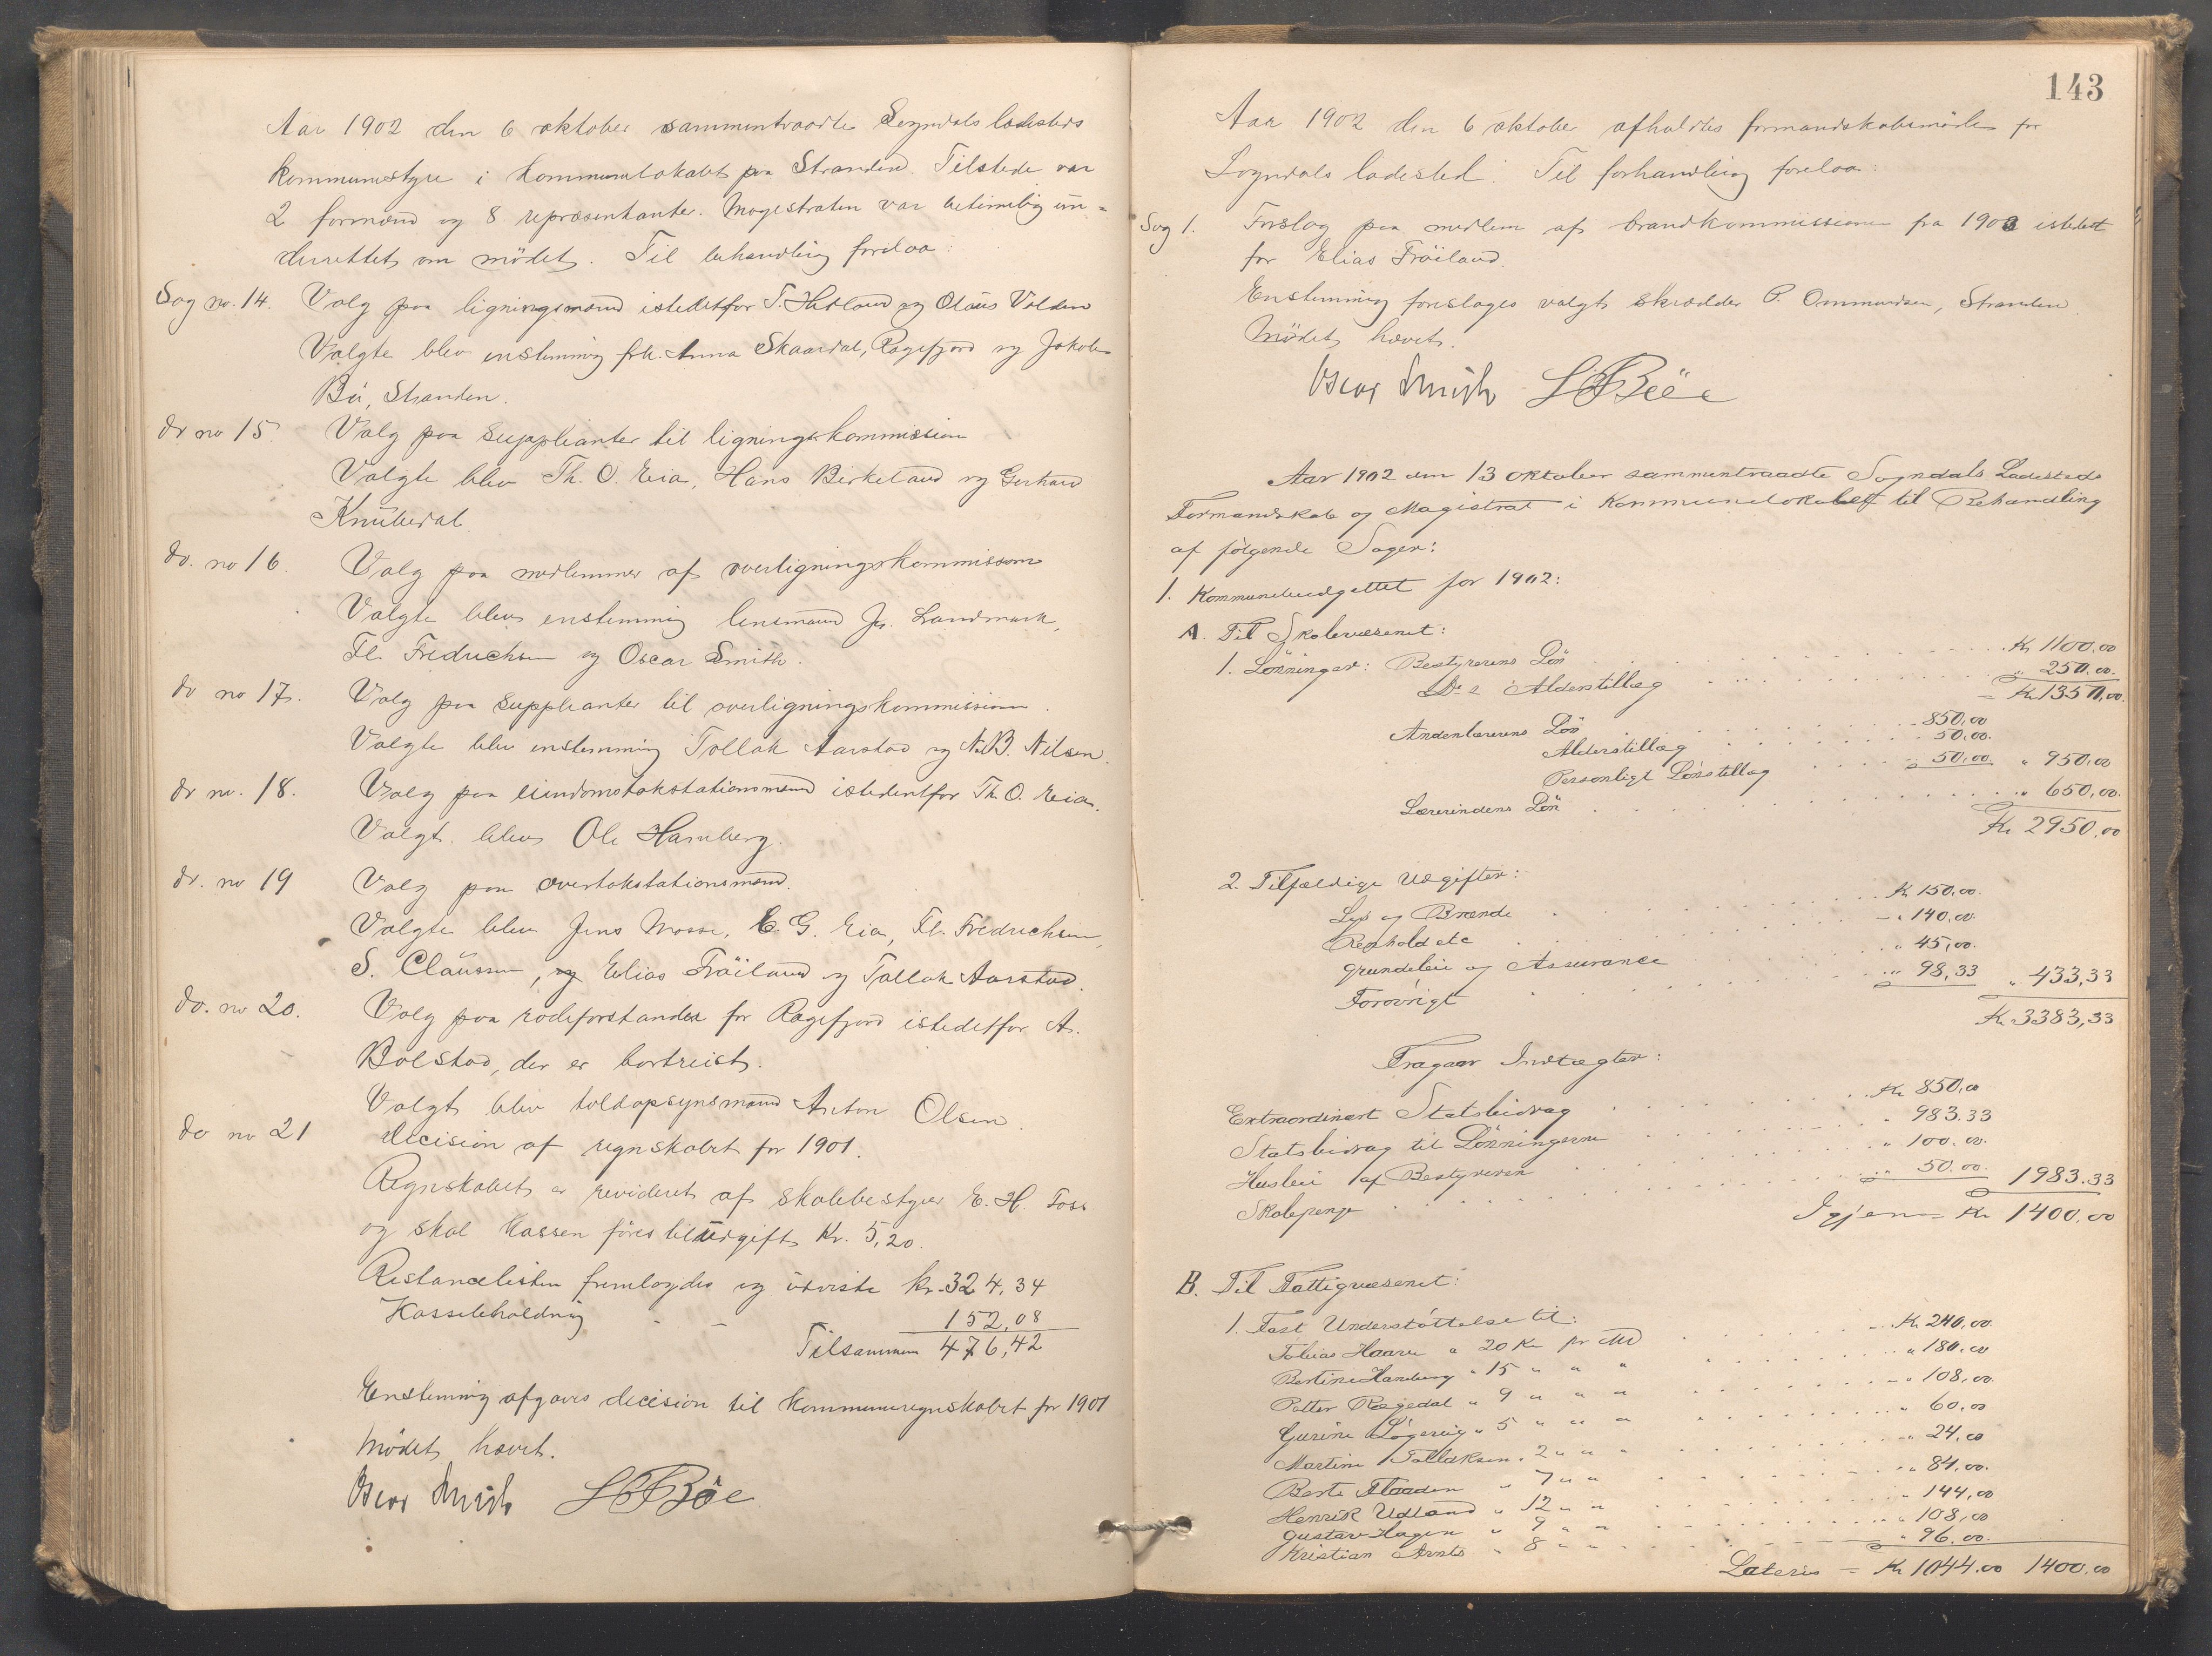 Aar 1902 den 6 oktober sammentraadte Sogndals ladesteds
kommunestyre i kommunelokalet paa Stranden. Tilstede var
2 formænd og 8 repræsentanter. Magistraten var betimelig un=
derrettet om mödet. Til behandling forelaa:
Sag no. 14. Valg paa ligningsmænd istedetfor T. Hidland og Olaus Valden
Valgte blev enstemmig frk. Anna Skaardal, Ragefjord og Jakob
Bö, Stranden.
do no 15. Valg paa supplianter til ligningskommission
Valgte blev Th. O. Eia, Hans Birkeland og Gerhard
Knubedal.
do. no 16. Valg paa medlemmer af overligningskommission
Valgte blev enstemmig lensmand Js. Landmark,
Fl. Fredrichsen og Oscar Smith.
do no 17. Valg paa supplianter til overligningskommission.
Valgte blev enstemmig Tollak Aarstad og N.B. Nilsen.
do no. 18. Valg paa eiendomstakstationsmænd istedentfor Th. O. Eia.
Valgt blev Ole Hamberg.
do. no 19 Valg paa overtakstationsmænd.
Valgte blev Jens Mosse, E. G. Eia, Fl. Fredrichsen,
S. Claussen, og Elias Fröiland og Tollak Aarstad.
do. no 20. Valg paa rodeforstander for Ragefjord istedetfor A.
Bolstad, der er bortreist.
Valgt blev toldopsynsmand Anton Olsen.
do no 21 decision af regnskabet for 1901.
Regnskabet er revideret af skolebestyrer E. H. Foss
og skal kassen föres til udgift Kr. 5,20.
Restancelisten fremlagdes og udviste kr. 324,34
Kassebeholdning - - 152,08
Tilsammen 476,42
Enstemmig afgaves decision til kommuneregnskabet for 1901
Mödet hævet.
Oscar Smith L T Böe
143
Aar 1902 den 6 oktober afholdtes formandskabsmöde for
Sogndals ladested. Til forhandling forelaa:
Sag 1. Forslag paa medlem af brandkommissionen fra 1903 istedet
for Elias Fröiland.
Enstemmig foreslages valgt skrædder P. Ommundsen, Stranden.
Mödet hævet.
Oscar Smith L T Böe
Aar 1902 den 13 oktober sammentraadte Sogndals Ladesteds
Formandskab og Magistrat i Kommunelokalet til Behandling
af følgende Sager:
1. Kommunebudgettet for 1902:
A. Til Skolevæsenet:
1. Lönninger: Bestyrerens Lön Kr 1100,00
Ds Alderstillæg " 250,00.
= Kr 1350,00.
Andenlærerens Lön 850,00
Alderstillæg 50,00.
Personligt Lönstillæg 50,00. " 950,00
Lærerindens Lön " 650,00.
Kr 2950,00
2. Tilfældige Udgifter:
Lys og Brænde Kr 150,00.
Renhold etc " 140,00.
Grundeleie og Assurance " 45,00.
Forövrigt " 98,33 " 433,33
Kr 3383,33
Fragaar Indtægter:
Extraordinært Statsbidrag Kr 850,00
Statsbidrag til Lönningerne " 983.33
Husleie af Bestyreren " 100,00.
Skolepenge " 50.00. 1983.33
Igjen = Kr 1400,00
B. Til Fattigvæsenet:
1. Fast Understöttelse til:
Tobias Haaen a 20 Kr pr Md Kr 240,00.
Bertine Hamberg " 15 " " " " 180,00
Petter Regedal " 9 " " " " 108,00.
Gurine Løgevig " 5 " " " " 60,00
Martine Tollaksen " 2 " " " " 24,00
Berte Flaaden " 7 " " " 84,00.
Henrik Udland " 12 " " " 144,00
Gustav Hagen " 9 " " " 108,00
Kristian Arnts " 8 " " " 96,00.
Lateris = Kr 1044.00 1400.00